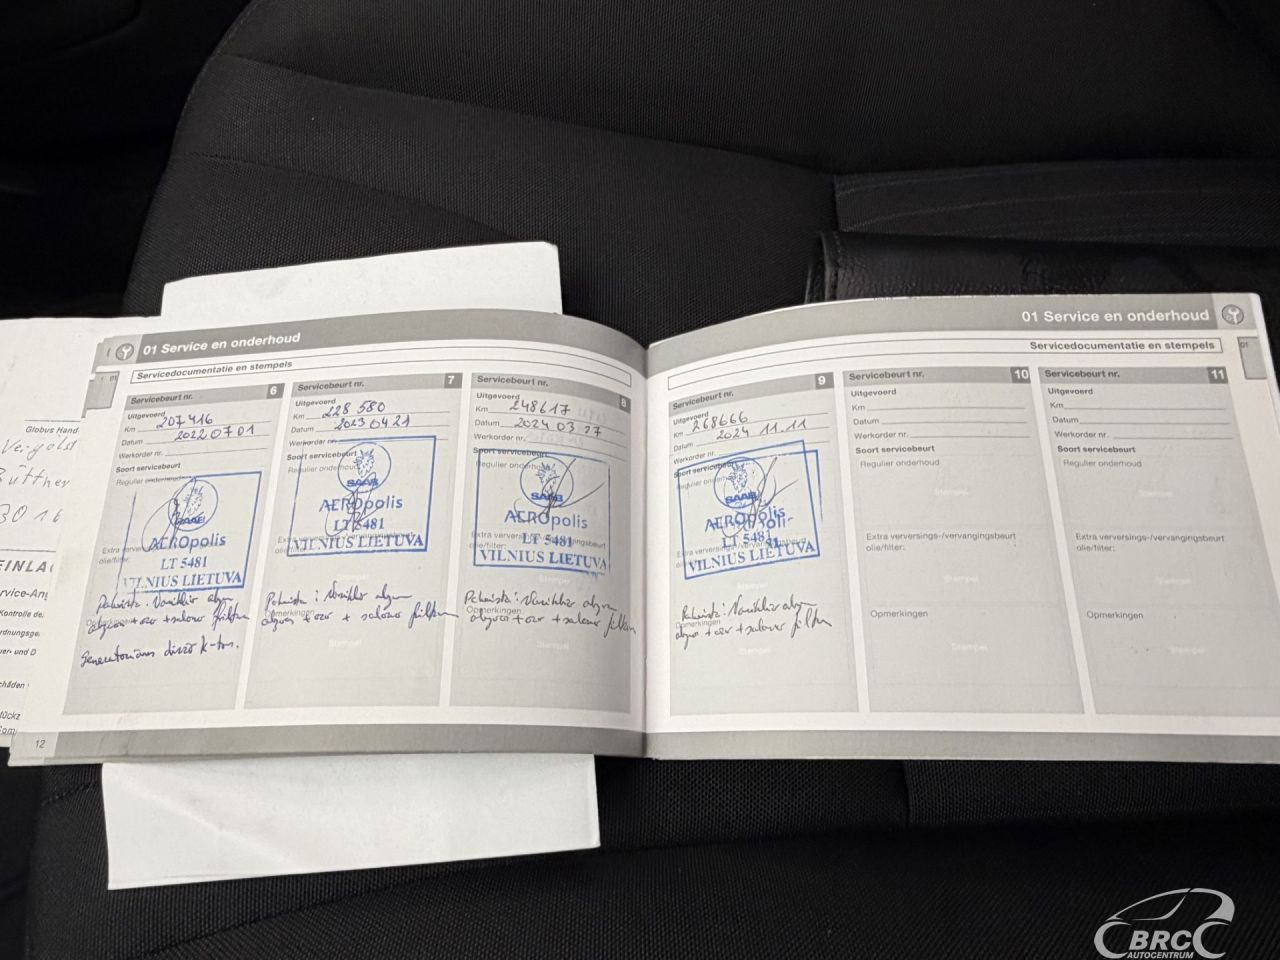 01 Service en onderhoud
Servicedocumentatie en stempels
Servicebeurt nr. 6
Uitgevoerd
Km 207416
Datum 2022 07 01
Werkorder nr.
Soort servicebeurt
Regulier onderhoud
SAAB
AEROpolis
LT 5481
VILNIUS LIETUVA
Extra verversings-/vervangingsbeurt
olie/filter:
Pakeista: Variklio alyva
alyvos + oro + salono filtrai
Opmerkingen
Generatoriaus diržo k-tas.
12
Servicebeurt nr. 7
Uitgevoerd
Km 228 580
Datum 2023 04 21
Werkorder nr.
Soort servicebeurt
Regulier onderhoud
SAAB
AEROpolis
LT 5481
VILNIUS LIETUVA
Extra verversings-/vervangingsbeurt
olie/filter:
Stempel
Pakeista: Variklio alyva
Opmerkingen
alyvos + oro + salono filtrai
Stempel
Servicebeurt nr. 8
Uitgevoerd
Km 248617
Datum 2024 03 27
Werkorder nr.
Soort servicebeurt
Regulier onderhoud
SAAB
AEROpolis
LT 5481
VILNIUS LIETUVA
Extra verversings-/vervangingsbeurt
olie/filter:
Stempel
Pakeista: Variklio alyva
Opmerkingen
alyvos + oro + salono filtrai
Stempel
01 Service en onderhoud
01
Servicedocumentatie en stempels
Servicebeurt nr. 9
Uitgevoerd
Km 268666
Datum 2024 11.11
Werkorder nr.
Soort servicebeurt
Regulier onderhoud
SAAB
AEROpolis
LT 5481
VILNIUS LIETUVA
Extra verversings-/vervangingsbeurt
olie/filter:
Stempel
Pakeista: Variklio alyva
Opmerkingen
alyvos + oro + salono filtrai
Stempel
Servicebeurt nr. 10
Uitgevoerd
Km
Datum
Werkorder nr.
Soort servicebeurt
Regulier onderhoud
Stempel
Extra verversings-/vervangingsbeurt
olie/filter:
Stempel
Opmerkingen
Stempel
Servicebeurt nr. 11
Uitgevoerd
Km
Datum
Werkorder nr.
Soort servicebeurt
Regulier onderhoud
Stempel
Extra verversings-/vervangingsbeurt
olie/filter:
Stempel
Opmerkingen
Stempel
Globus Hand
EINLA
Kontrolle de
BRC
AUTOCENTRUM